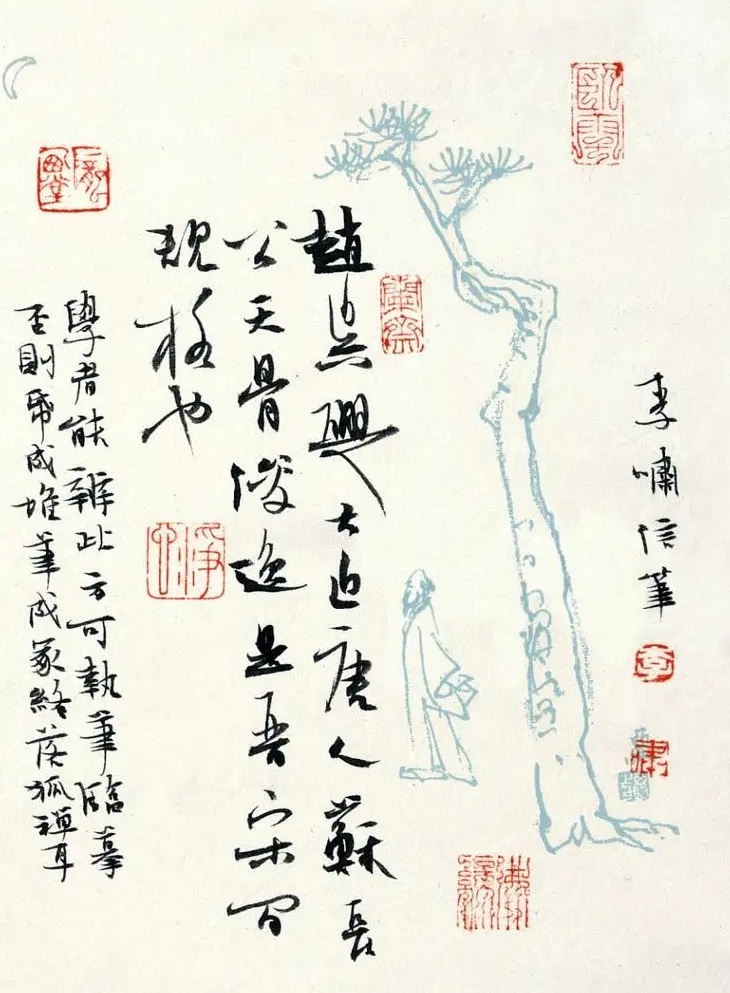 趙吳興大近唐人蘇長
公天骨俊逸是晉宋間
規格也
學者能辨此方可執筆臨摹
否則帋成堆筆成冢終落狐禪耳
李嘯信筆